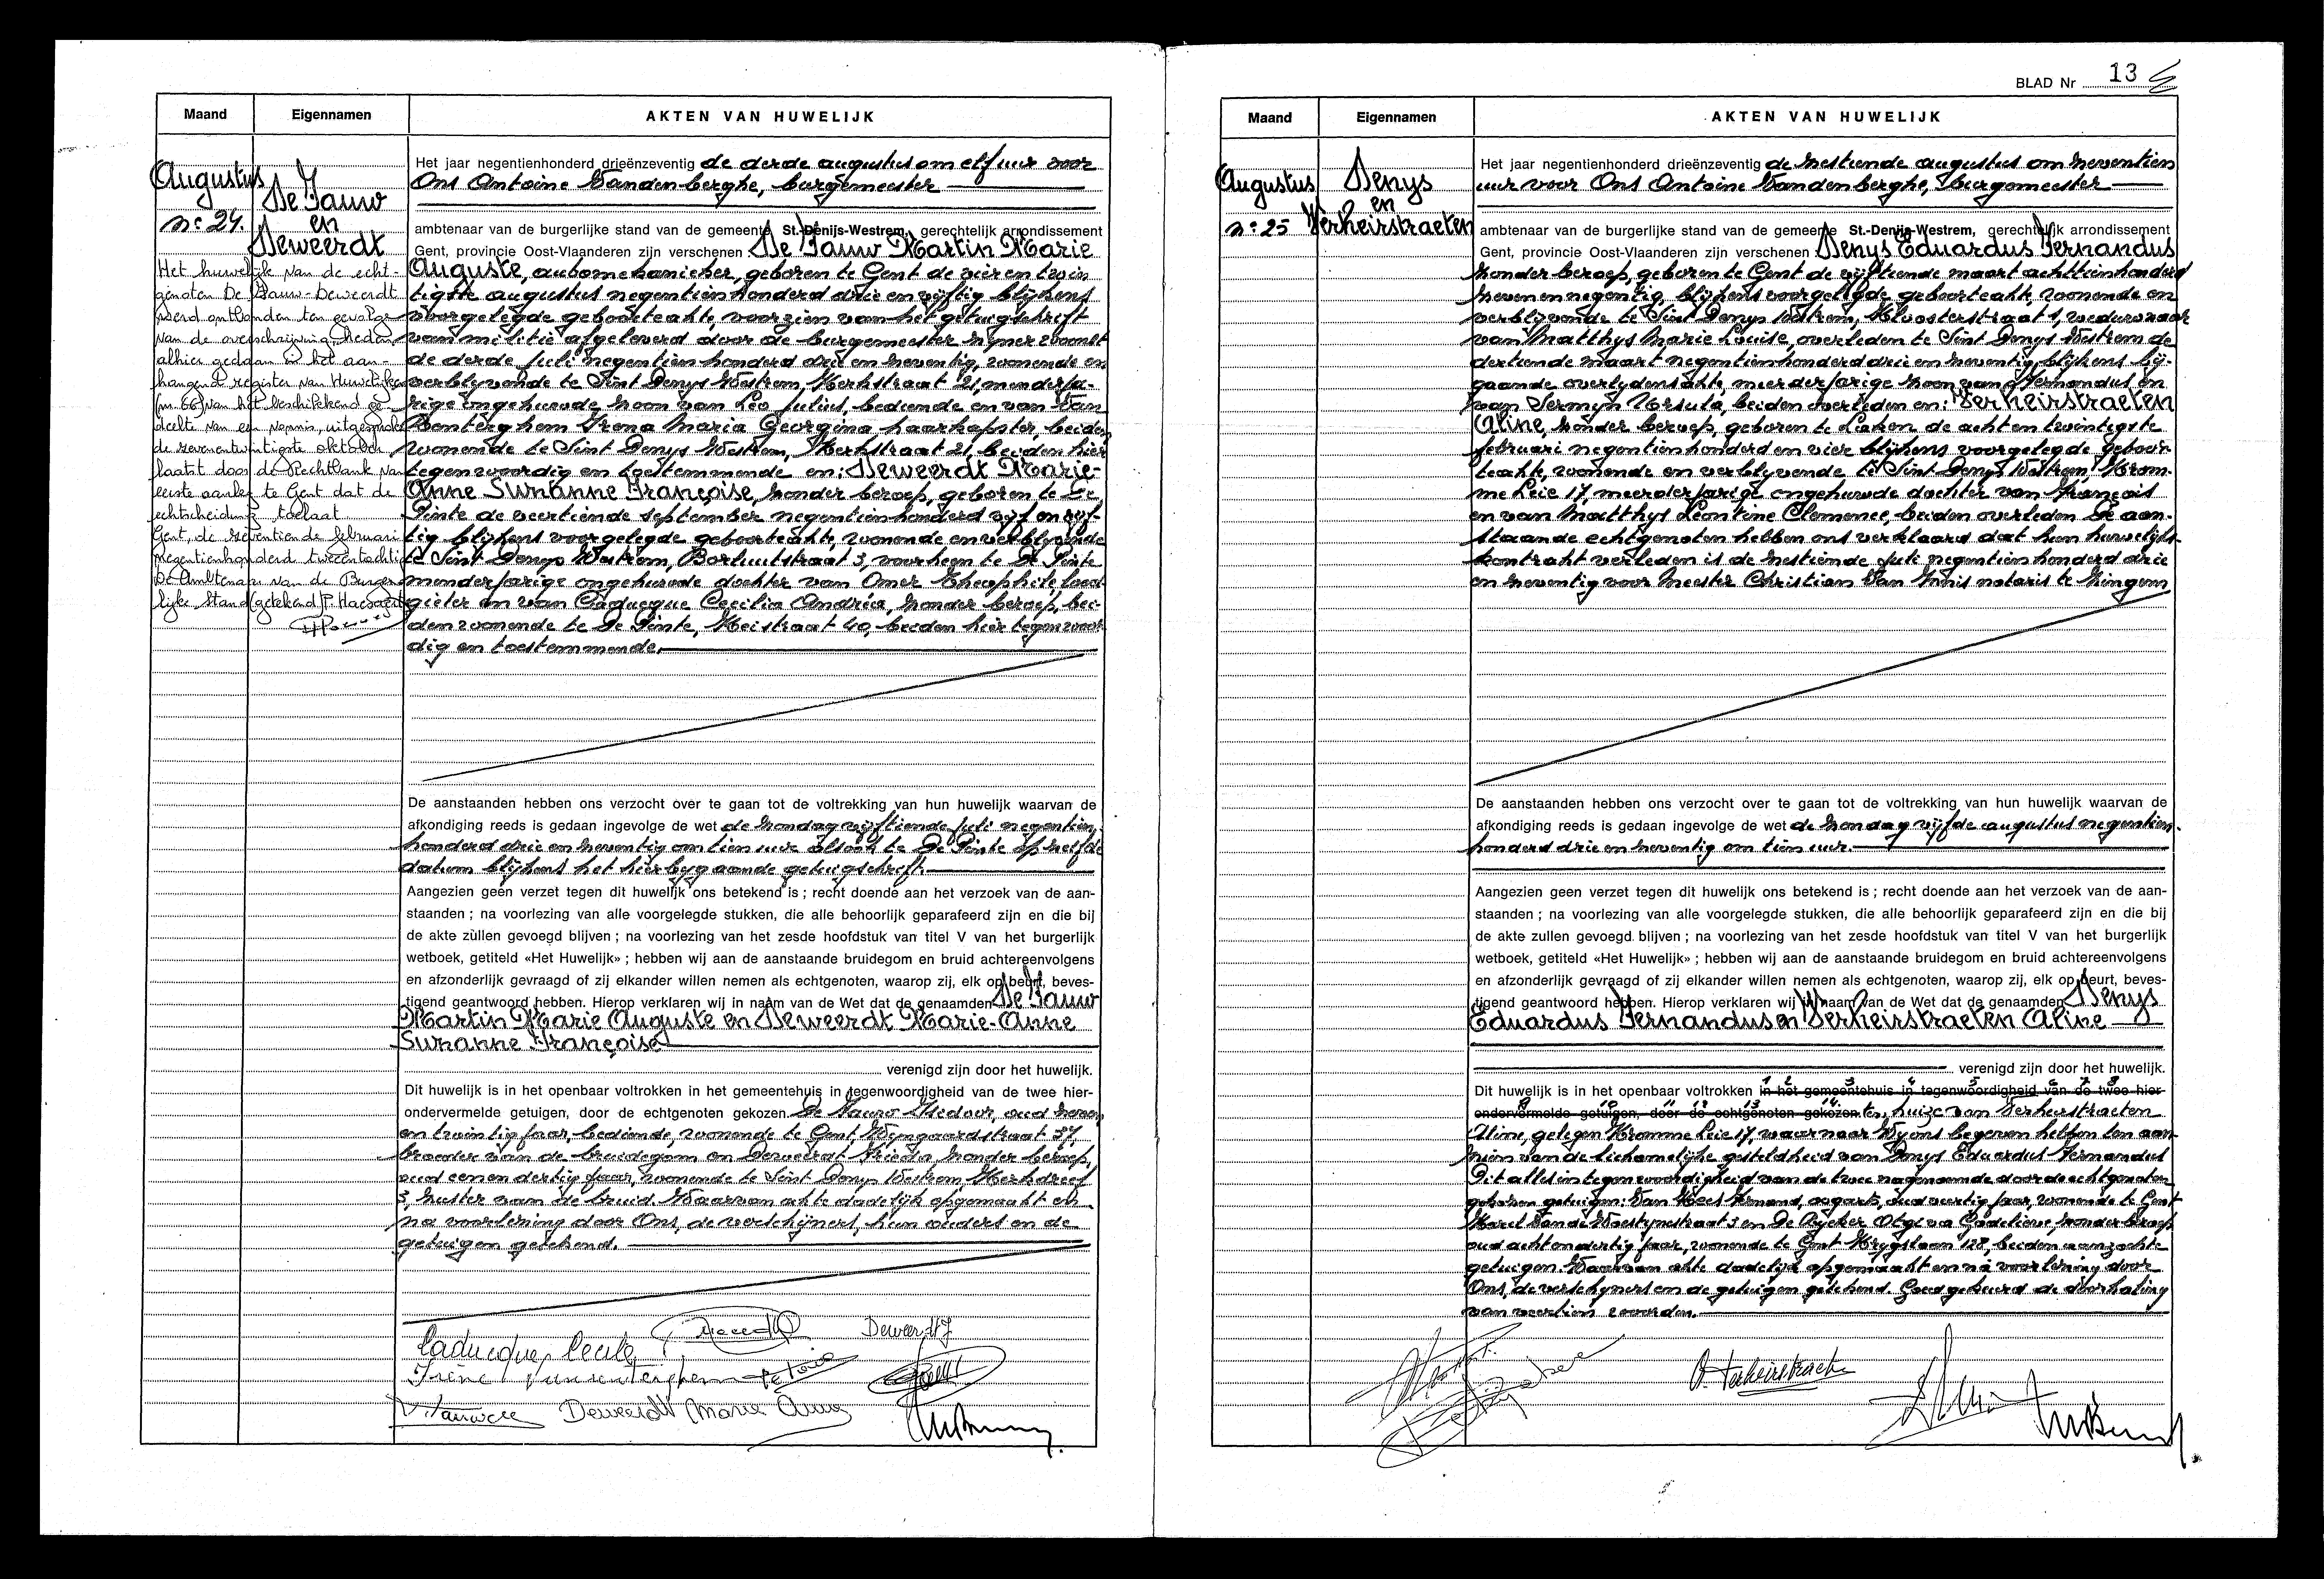 Maand Eigennamen AKTEN VAN HUWELIJK
Augustus
nº 24.
De Pauw
en
Deweerdt
Het huwelijk van de echt-
genoten De Pauw-Deweerdt
werd ontbonden ten gevolge
van de overschrijving heden
alhier gedaan in het aan-
hangend register van Huwelijken
(nr 66) van het beschikkend ge-
deelte van een vonnis, uitgesproken
de zevenentwintigste oktober
laatst door de Rechtbank van
eerste aanleg te Gent dat de
echtscheiding toelaat
Gent, de zeventiende februari
negentienhonderd tweeëntachtig
De Ambtenaar van de Burger-
lijke Stand (getekend) P.
Het jaar negentienhonderd drieënzeventig de derde augustus om elf uur voor
Ons Antoine Vandenberghe, burgemeester
ambtenaar van de burgerlijke stand van de gemeente St.-Denijs-Westrem, gerechtelijk arrondissement
Gent, provincie Oost-Vlaanderen zijn verschenen De Pauw Martin Marie
Auguste, automekanieker, geboren te Gent de vier en twin
tigste augustus negentienhonderd drie en vijftig blijkens
voorgelegde geboorteakte, voorzien van het getuigschrift
van militie afgeleverd door de burgemeester zijner woonst
de derde Juli negentienhonderd drie en zeventig, wonende en
verblijvende te Sint Denys Westrem, Kerkstraat 21, minderja-
rige ongehuwde zoon van Leo Julius, bediende en van Van
Renterghem Irena Maria Georgina haarkapster, beiden
wonende te Sint Denys Westrem, Kerkstraat 21, beiden hier
tegenwoordig en toestemmende en: Deweerdt Marie-
Anne Suzanne Françoise, zonder beroep, geboren te De
Pinte de veertiende september negentienhonderd vijf en vijf-
tig blijkens voorgelegde geboorteakte, wonende en verblijvende
te Sint Denys Westrem, Borluutstraat 3, voorheen te De Pinte
minderjarige ongehuwde dochter van Omer Theophile, lood
gieter en van Caducque Cecilia Andréa, zonder beroep, bei-
den wonende te De Pinte, Meistraat 40, beiden hier tegenwoor-
dig en toestemmende.
De aanstaanden hebben ons verzocht over te gaan tot de voltrekking van hun huwelijk waarvan de
afkondiging reeds is gedaan ingevolge de wet de zondag vijftiende juli negentien
honderd drie en zeventig om tien uur alsook te De Pinte op zelfde
datum blijkens het hierbijgaande getuigschrift.
Aangezien geen verzet tegen dit huwelijk ons betekend is ; recht doende aan het verzoek van de aan-
staanden ; na voorlezing van alle voorgelegde stukken, die alle behoorlijk geparafeerd zijn en die bij
de akte zullen gevoegd blijven ; na voorlezing van het zesde hoofdstuk van titel V van het burgerlijk
wetboek, getiteld «Het Huwelijk» ; hebben wij aan de aanstaande bruidegom en bruid achtereenvolgens
en afzonderlijk gevraagd of zij elkander willen nemen als echtgenoten, waarop zij, elk op beurt, beves-
tigend geantwoord hebben. Hierop verklaren wij in naam van de Wet dat de genaamden De Pauw
Martin Marie Auguste en Deweerdt Marie-Anne
Suzanne Françoise
verenigd zijn door het huwelijk.
Dit huwelijk is in het openbaar voltrokken in het gemeentehuis in tegenwoordigheid van de twee hier-
ondervermelde getuigen, door de echtgenoten gekozen De Pauw Isidoor, oud zeven
en twintig jaar, bediende, wonende te Gent, Wyngaardstraat 37,
broeder van de bruidegom en Deweerdt Frieda zonder beroep,
oud eenendertig jaar, wonende te Sint Denys Westrem, Kerkdreef
3, zuster van de bruid. Waarvan akte dadelijk opgemaakt en
na voorlezing door Ons, de verschijners, hun ouders en de
getuigen getekend.
Caducque Cecile
Deweerdt Marie Anne
BLAD Nr 13
Maand Eigennamen AKTEN VAN HUWELIJK
Augustus
nº 25
Denys
en
Verheirstraeten
Het jaar negentienhonderd drieënzeventig de zestiende augustus om zeventien
uur voor Ons Antoine Vandenberghe, burgemeester
ambtenaar van de burgerlijke stand van de gemeente St.-Denijs-Westrem, gerechtelijk arrondissement
Gent, provincie Oost-Vlaanderen zijn verschenen : Denys Eduardus Fernandus
zonder beroep, geboren te Gent de vijftiende maart achttienhonderd
zevenennegentig, blijkens voorgelegde geboorteakte, wonende en
verblijvende te Sint Denys Westrem, Kloosterstraat 1, weduwnaar
van Matthys Marie Louise, overleden te Sint Denys Westrem de
dertiende maart negentienhonderd drie en zeventig, blijkens bij-
gaande overlydensakte, meerderjarige zoon van Fernandus en
van Sermyn Ursula, beiden overleden en: Verheirstraeten
Aline, zonder beroep, geboren te Laken de acht en twintigste
februari negentienhonderd en vier blijkens voorgelegde geboor-
teakte, wonende en verblijvende te Sint Denys Westrem, Krom-
me Leie 17, meerderjarige ongehuwde dochter van François
en van Matthys Leontine Clemence, beiden overleden De aan-
staande echtgenoten hebben ons verklaard dat hun huwelijks-
kontrakt verleden is de zestiende juli negentienhonderd drie
en zeventig voor Meester Christian Van Ninis notaris te Zingem
De aanstaanden hebben ons verzocht over te gaan tot de voltrekking van hun huwelijk waarvan de
afkondiging reeds is gedaan ingevolge de wet de zondag vijfde augustus negentien-
honderd drie en zeventig om tien uur.
Aangezien geen verzet tegen dit huwelijk ons betekend is ; recht doende aan het verzoek van de aan-
staanden ; na voorlezing van alle voorgelegde stukken, die alle behoorlijk geparafeerd zijn en die bij
de akte zullen gevoegd blijven ; na voorlezing van het zesde hoofdstuk van titel V van het burgerlijk
wetboek, getiteld «Het Huwelijk» ; hebben wij aan de aanstaande bruidegom en bruid achtereenvolgens
en afzonderlijk gevraagd of zij elkander willen nemen als echtgenoten, waarop zij, elk op beurt, beves-
tigend geantwoord hebben. Hierop verklaren wij in naam van de Wet dat de genaamden Denys
Eduardus Fernandus en Verheirstraeten Aline
verenigd zijn door het huwelijk.
1 2 3 4 5 6 7 8
Dit huwelijk is in het openbaar voltrokken in het gemeentehuis in tegenwoordigheid van de twee hier-
9 10 11 12 13 14
ondervermelde getuigen, door de echtgenoten gekozen ten huize van Verheirstraeten
Aline, gelegen Kromme Leie 17, waarnaar Wij ons begeven hebben ten aan-
zien van de lichamelijke gesteldheid van Denys Eduardus Fernandus
Dit alles in tegenwoordigheid van de twee nagenoemde door de echtgenoten
gekozen getuigen: Van Hoes oogarts, oud veertig jaar, wonende te Gent
Karel Van de Woestynestraat 3 en De Rycker Godelieve, zonder beroep
oud achtendertig jaar, wonende te Gent Krygslaan 128, beiden aanzochte
getuigen. Waarvan akte dadelijk opgemaakt en na voorlezing door
Ons, de verschijners en de getuigen getekend. Goedgekeurd de doorhaling
van veertien woorden.
A. Verheirstraeten